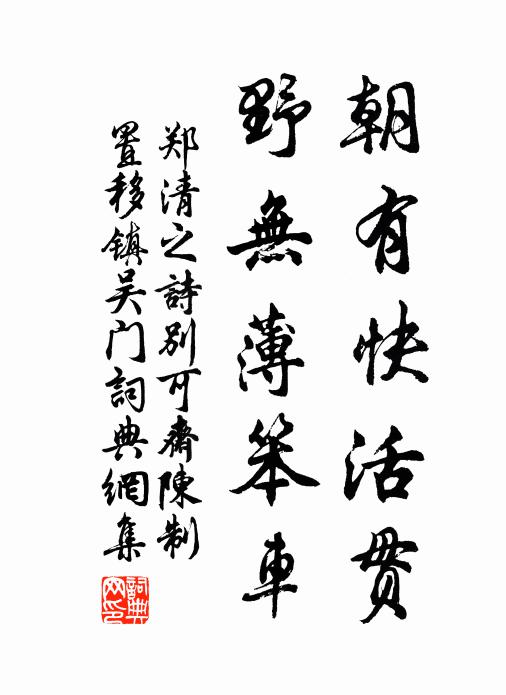 朝有快活贯
野無薄笨車
郑清之詩别可齋陳制
置移鎮吴门詞典網集
詞典网印